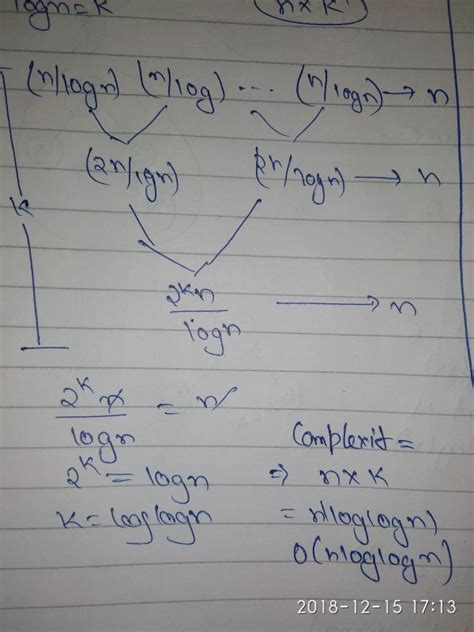 logn=k (n×k)
(n/logn) (n/log) --- (n/logn) → n
(2n/logn) (2n/logn) → n
k
2^k n/logn → n
2^k n/logn = n
2^k = logn
k = loglogn
Complexit =
⇒ n×k
= n(loglogn)
O(nloglogn)
2018-12-15 17:13